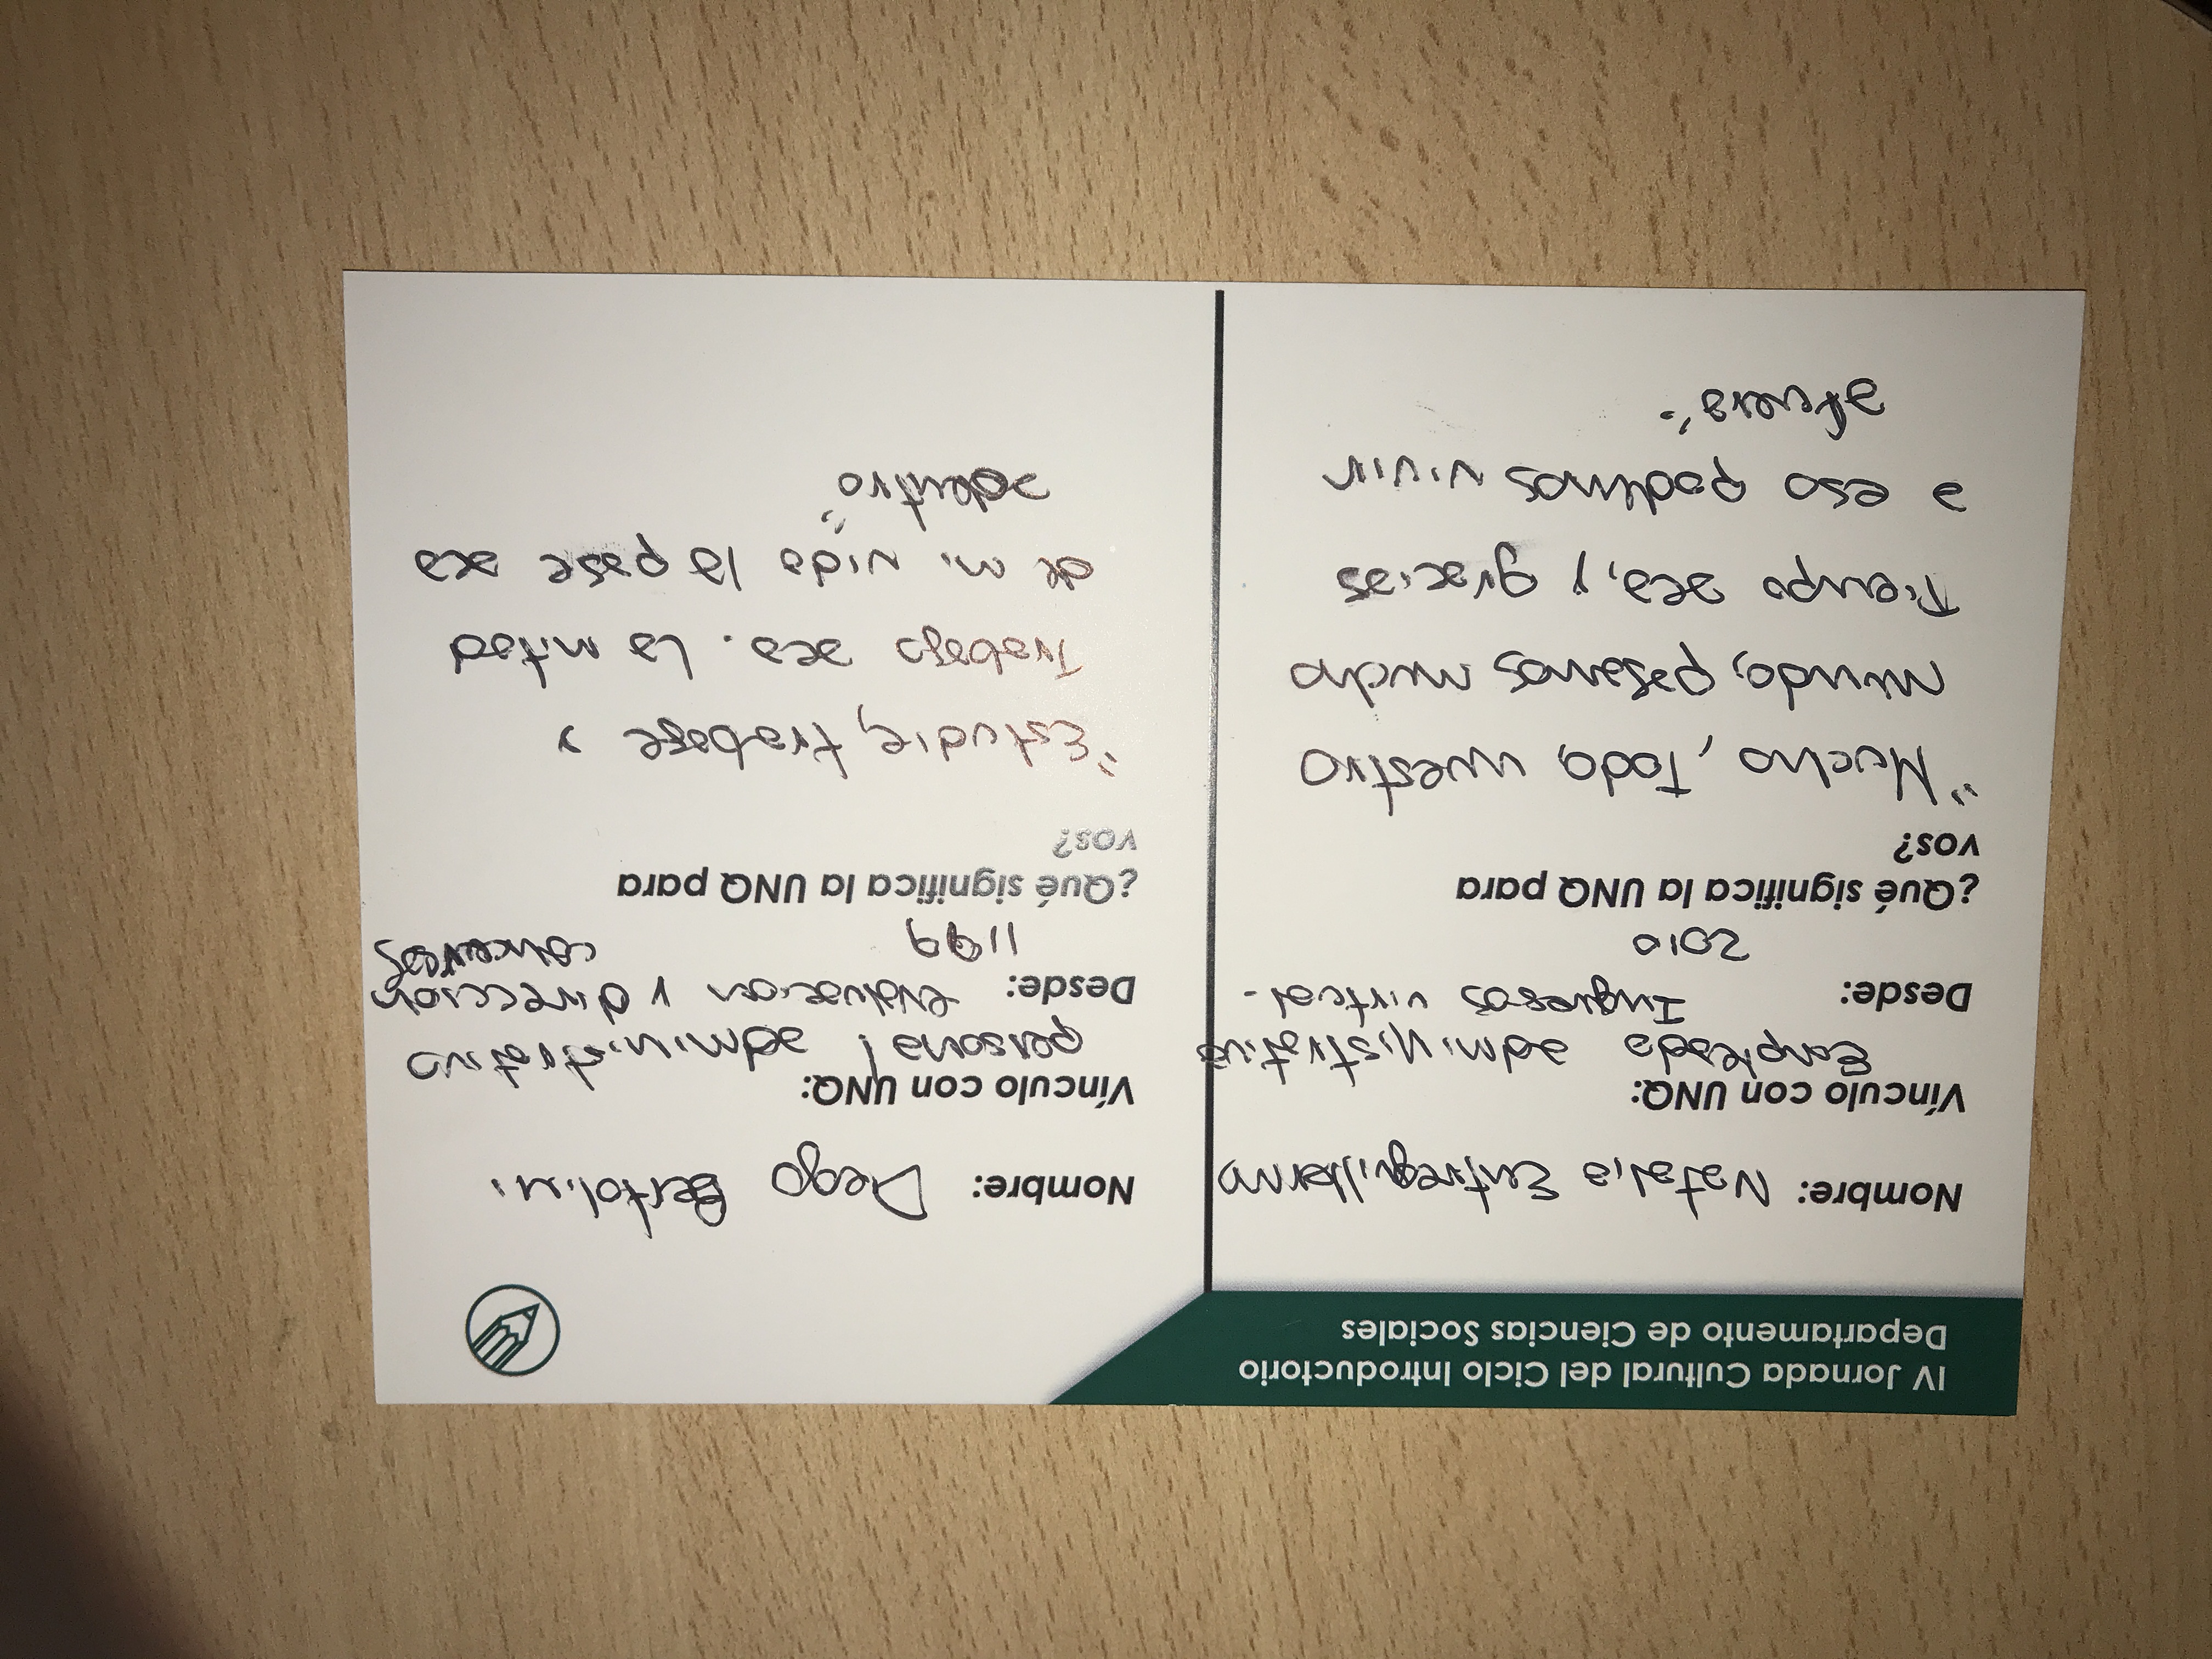 IV Jornada Cultural del Ciclo Introductorio
Departamento de Ciencias Sociales
Nombre: Natalia Entreguilherno
Vínculo con UNQ:
Empleada administrativa
Ingresos virtual-
Desde:
2010
¿Qué significa la UNQ para
vos?
"Mucho, Todo nuestro
mundo, pasamos mucho
Tiempo aca, y gracias
a eso podemos vivir
afuera".
Nombre: Diego Bertolini
Vínculo con UNQ:
personal administrativo
evaluacion y dirección
concursos
Desde:
1199
¿Qué significa la UNQ para
vos?
"Estudié, trabase y
Trabago aca. La mitad
de mi vida la pase aca
adentro"